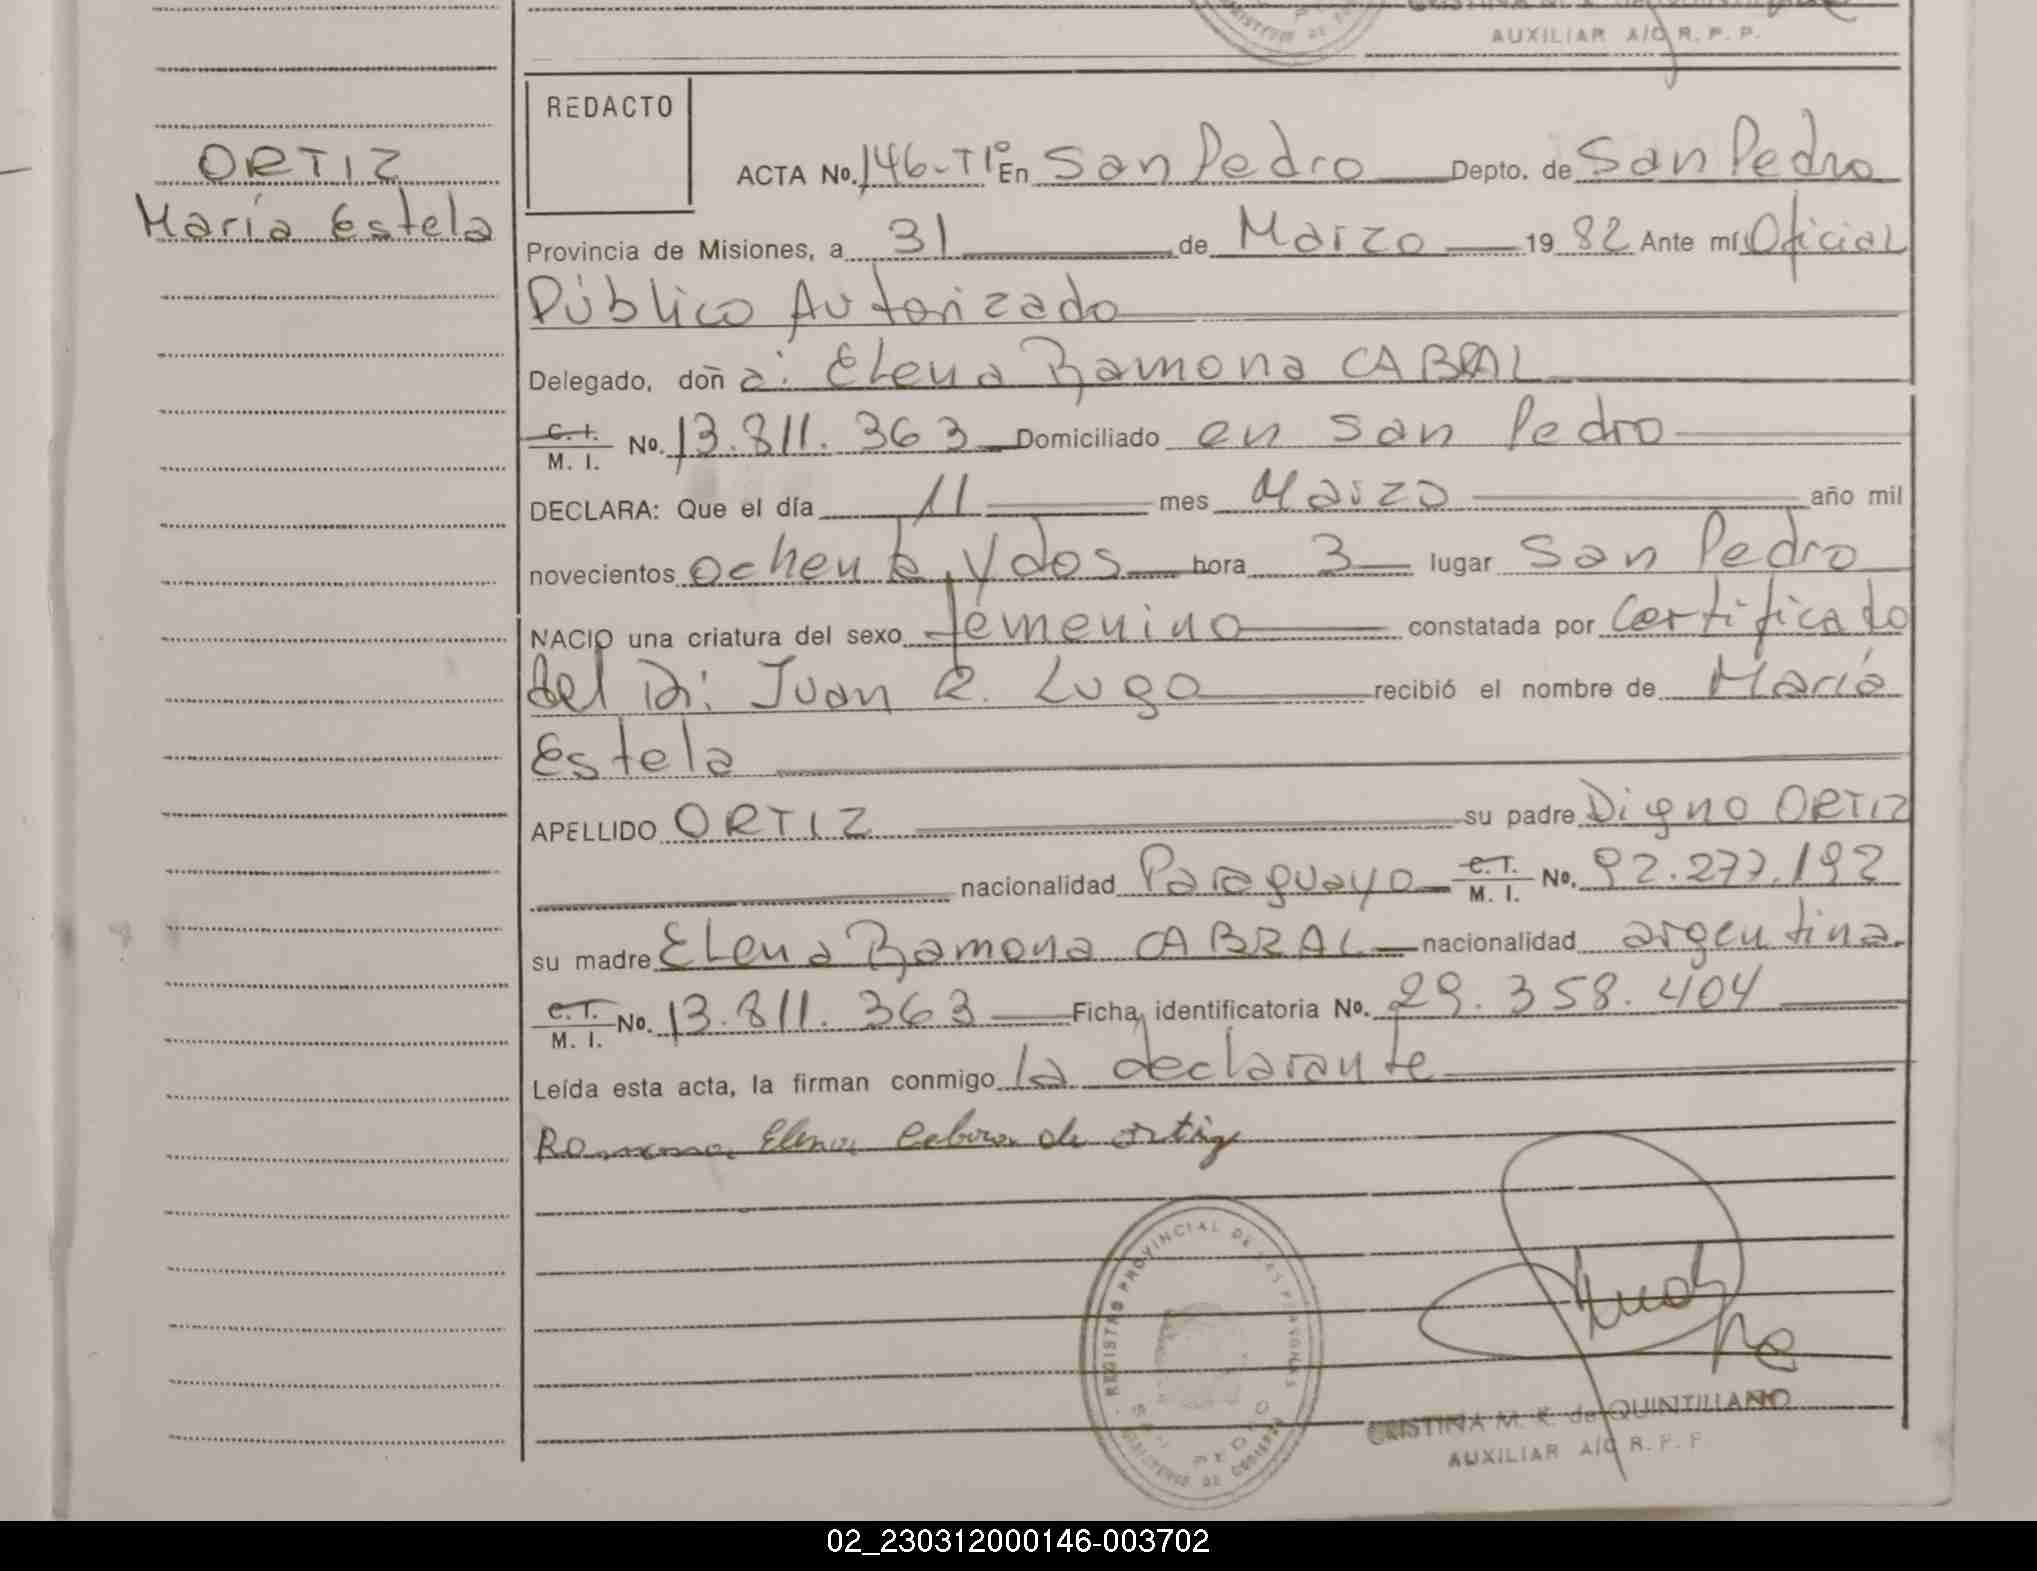 AUXILIAR A/C R. P. P.
REDACTO
ORTIZ
María Estela
ACTA No. 146-T1º En San Pedro Depto. de San Pedro
Provincia de Misiones, a 31 de Marzo 19 82 Ante mí Oficial
Público Autorizado
Delegado, doñ a: Elena Ramona CABRAL
C. I. / M. I. No. 13.811.363 Domiciliado en San Pedro
DECLARA: Que el día 11 mes Marzo año mil
novecientos ochenta y dos hora 3 lugar San Pedro
NACIO una criatura del sexo femenino constatada por Certificado
del Dr. Juan R. Lugo recibió el nombre de María
Estela
APELLIDO ORTIZ su padre Digno ORTIZ
nacionalidad Paraguayo C. I. / M. I. No. 92.277.192
su madre Elena Ramona CABRAL nacionalidad argentina
C. I. / M. I. No. 13.811.363 Ficha identificatoria No. 29.358.404
Leída esta acta, la firman conmigo la declarante
Ramona Elena Cabral de Ortiz
REGISTRO PROVINCIAL DE LAS PERSONAS
SAN PEDRO
MINISTERIO DE GOBIERNO
CRISTINA M. K. de QUINTILLANO
AUXILIAR A/C R. P. P.
02_230312000146-003702